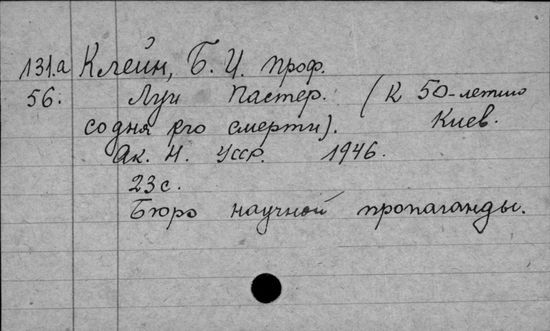 131.а Клейн, Б. И. проф.
56. Луи Пастер. (К 50-летию
со дня его смерти). Киев.
Ак. Н. УССР. 1946.
23 с.
Бюро научной пропаганды.